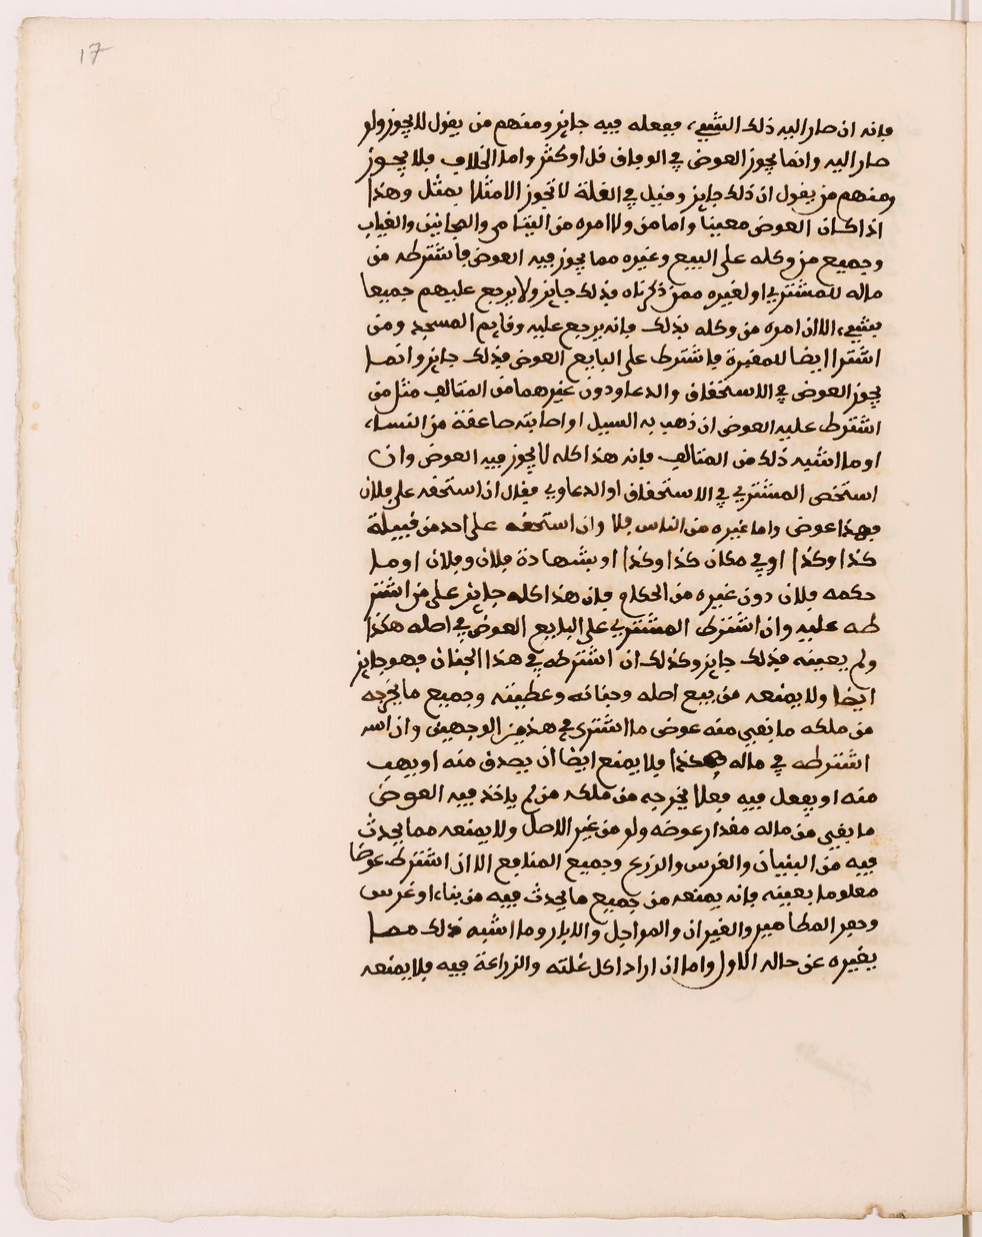 17
فإنه ان صار اليه ذلك الشيء، ففعله فيه جايز ومنهم من يقول لا يجوز ولو
صار اليه وانما يجوز العوض في الوفاق قل او كثر واما الخلاف فلا يجوز
ومنهم من يقول ان ذلك جايز وقيل في الغلة لا تجوز الا مثلا بمثل وهذا
اذا كان العوض معينا واما من ولا امره من اليتامى والمجانين والغياب
وجميع من وكله على البيع وغيره مما يجوز فيه العوض فاشترطه من
ماله للمشتري او لغيره ممن ذكرناه فذلك جايز ولا يرجع عليهم جميعا
بشيء، الا ان امره من وكله بذلك فإنه يرجع عليه وقايم المسجد ومن
اشترا ايضا للمقبرة فاشترط على البايع العوض فذلك جايز وانما
يجوز العوض في الاستحقاق والدعاو دون غيرهما من المتالف مثل من
اشترط عليه العوض ان ذهب به السيل او اصابته صاعقة من السماء،
او ما اشبه ذلك من المتالف فإنه هذا كله لا يجوز فيه العوض وان
استخص المشتري في الاستحقاق او الدعاوي فقال ان استحقه على فلان
فهذا عوض واما غيره من الناس فلا وان استحقه على احد من قبيلة
كذا وكذا او في مكان كذا وكذا او بشهادة فلان وفلان او ما
حكمه فلان دون غيره من الحكام فان هذا كله جايز على من اشتر
طه عليه وان اشترط المشتري على البايع العوض في اصله هكذا
ولم يعينه فذلك جايز وكذلك ان اشترطه في هذا الجنان فهو جايز
ايضا ولا يمنعه من بيع اصله وجنانه وعطيته وجميع ما يخرجه
من ملكه ما بقي منه عوض ما اشترى في هذين الوجهين وان اسه
اشترطه في ماله هكذا فلا يمنع ايضا ان يصدق منه او يهب
منه او يفعل فيه فعلا يخرجه من ملكه من لم ياخذ فيه العوض
ما بقي من ماله مقدار عوضه ولو من غير الاصل ولا يمنعه مما يحدث
فيه من البنيان والغرس والزرع وجميع المنافع الا ان اشترط عوضا
معلوما بعينه فإنه يمنعه من جميع ما يحدث فيه من بناء او غرس
وحفر المطامير والغيران والمواجل والابار وما اشبه ذلك مما
يغيره عن حاله الاول واما ان اراد اكل غلته والزراعة فيه فلا يمنعه